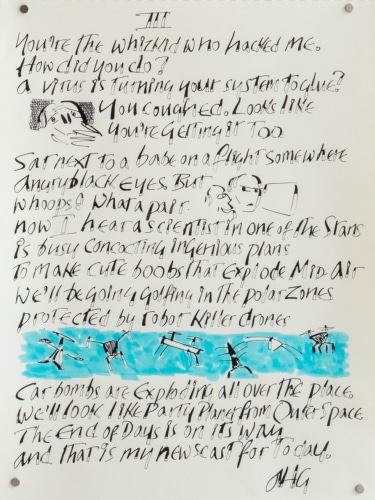 III
You're the whizkid who hacked me.
How did you do?
a virus is turning your system to glue?
You coughed. Looks like
you're getting it too
Sat next to a babe on a flight somewhere
angry black eyes. But
whoops! What a pair
now I hear a scientist in one of the Stans
is busy concocting ingenious plans
to make cute boobs that explode Mid air
we'll be going golfing in the polar zones
protected by robot killer drones
Car bombs are exploding all over the place.
we'll look like Party Planet from Outer Space
The End of Days is on its way
and that is my newscast for today.